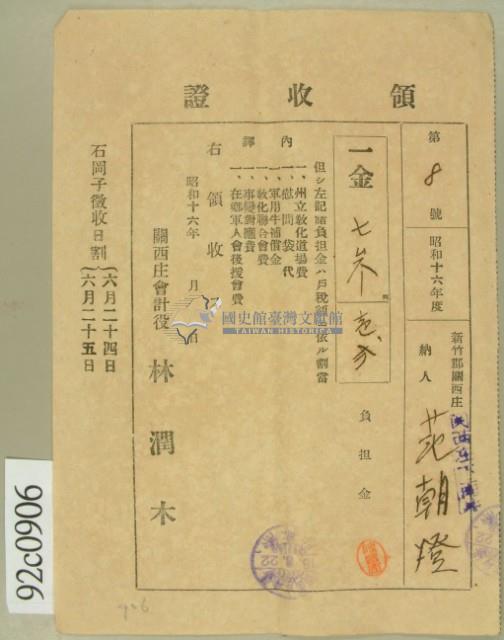 領收證
第8號
昭和十六年度
新竹郡關西庄
納人 范朝燈
一金
負担金
但シ左記諸負担金ハ戶稅額ニ依ル割當
內譯
一、州立敎化道場費
一、慰問袋代
一、軍用牛補償金
一、敎化聯合會費
一、在鄉軍人會後援會費
右領收
昭和十六年 月
關西庄會計役 林潤木
石岡子徵收日割
六月二十四日
六月二十五日
國史館臺灣文獻館
TAIWAN HISTORICA
92c0906